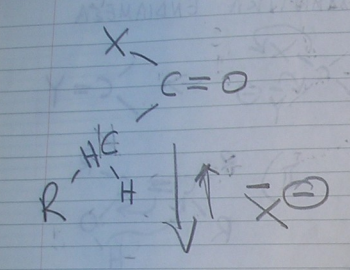 X
C=O
HC
R H X⊖